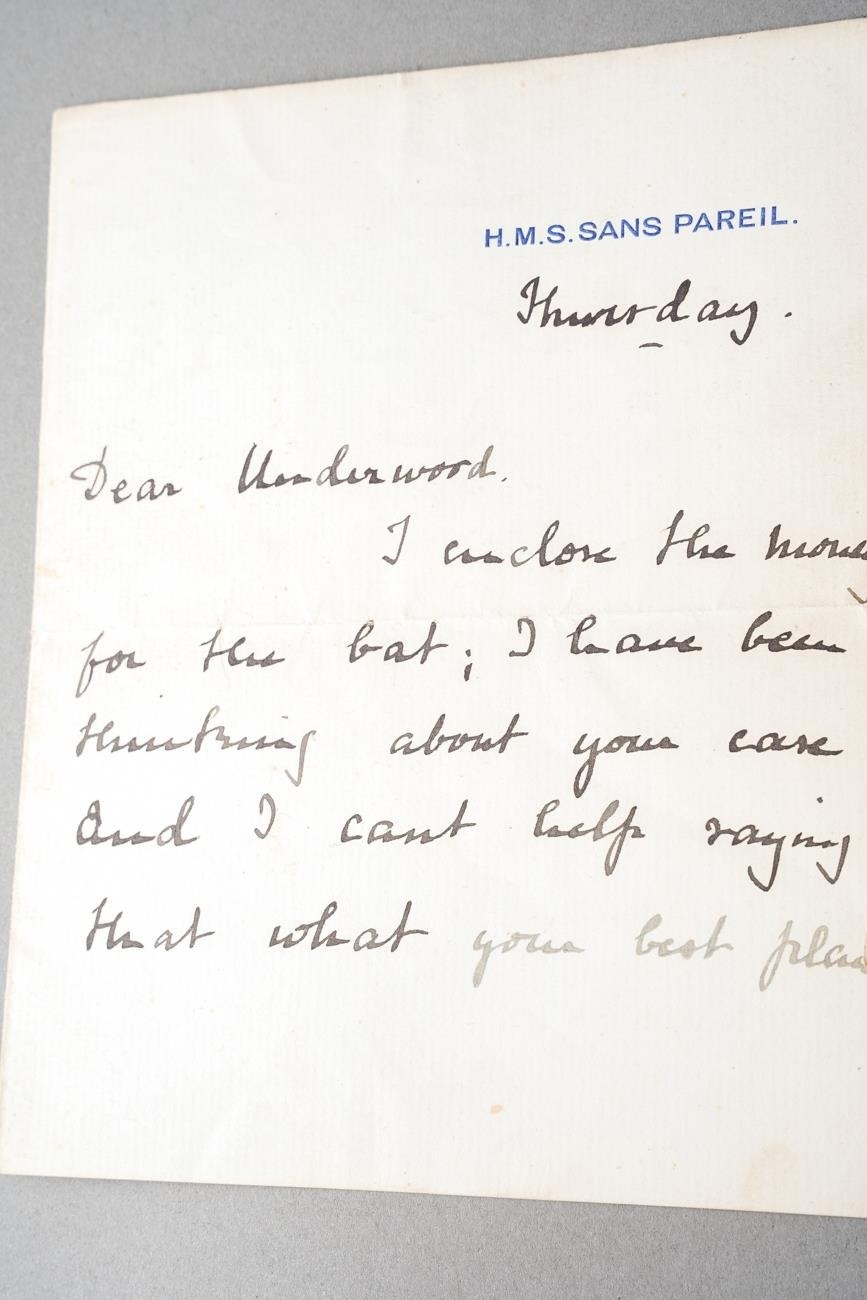 H.M.S. SANS PAREIL.
Thursday.
Dear Underwood.
I enclose the money
for the bat; I have been
thinking about your case
and I cant help saying
that what your best plan